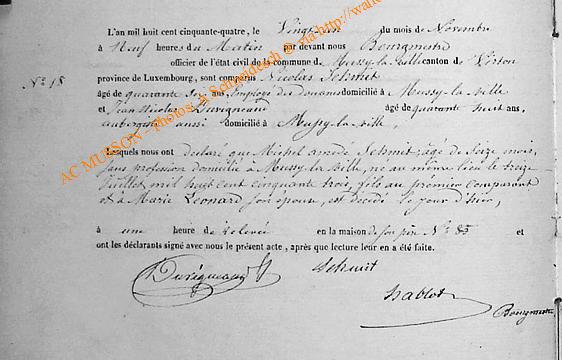 L'an mil huit cent cinquante-quatre, le Vingt-un du mois de Novembre
à Neuf heures du Matin par devant nous Bourgmestre
officier de l'état civil de la commune de Mussy-la-Ville canton de Virton
N° 18
province de Luxembourg, sont comparus Nicolas Schmit
âgé de quarante six ans, Employé des douanes domicilié à Mussy-la-ville
et Jean Nicolas Duvigneaud âgé de quarante huit ans,
aubergiste aussi domicilié à Mussy-la-ville,
Lesquels nous ont déclaré que Michel amédé Schmit, âgé de Seize mois,
sans profession domicilié à Mussy-la-Ville, né au même lieu le treize
Juillet mil huit cent cinquante trois, fils au premier Comparant
et à Marie Léonard son épouse, est décédé le jour d'hier,
à une heure de relevée en la maison de son père N° 85 et
ont les déclarants signé avec nous le présent acte, après que lecture leur en a été faite.
Schmit
Hablot
Bourgmestre
AC MUSSON - photos A. Schneidesch © via http://www